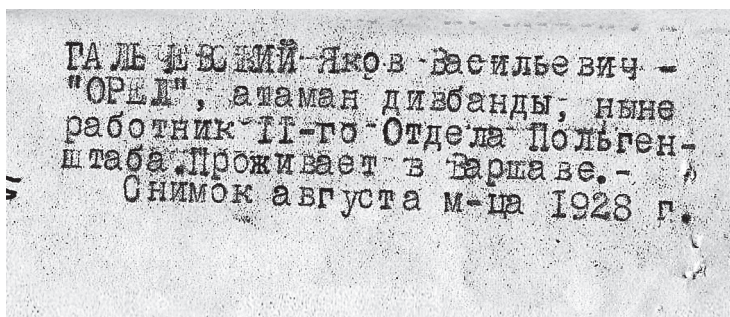 ГАЛЬЧЕВСКИЙ Яков Васильевич -
"ОРЕЛ", атаман дивбанды, ныне
работник II-го Отдела Польген-
штаба.Проживает в Варшаве.-
Снимок августа м-ца 1928 г.